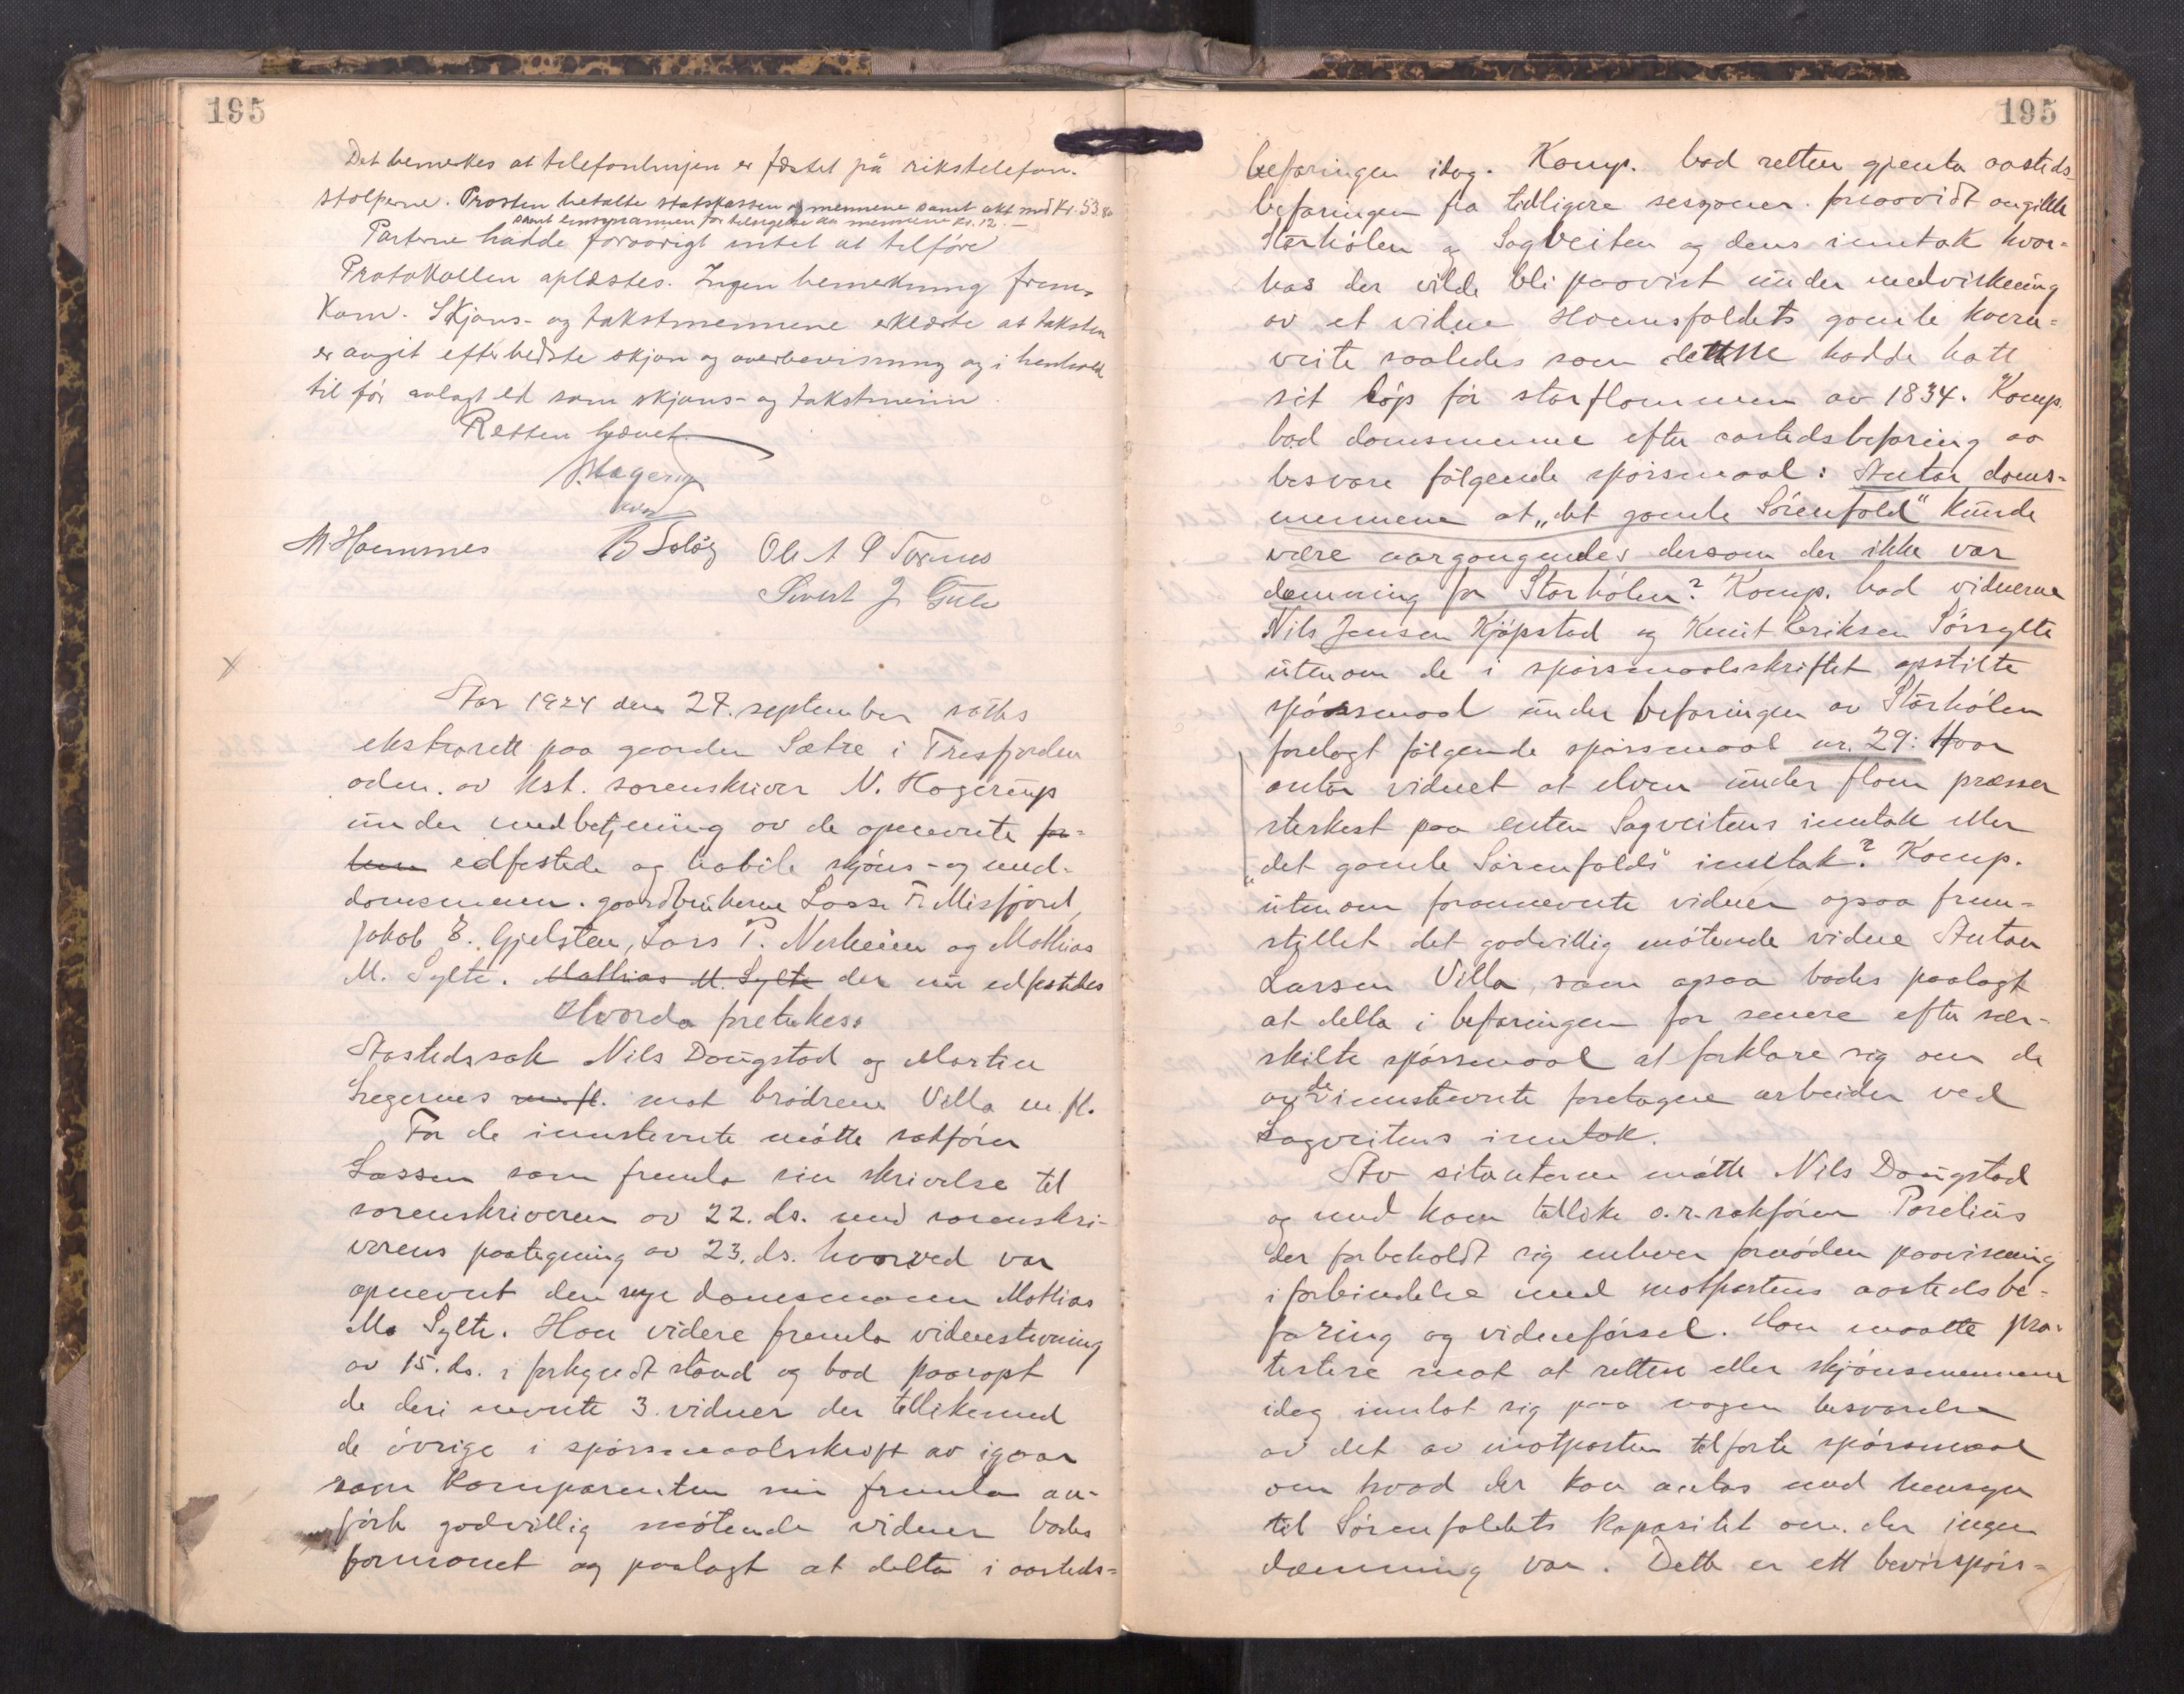 195
Det bemerkes at telefonlinjen er fæstet på rikstelefon-
stolperne. Prosten betalte statskassen og mennene samt akt med kr. 53.80
samt lensmannen for tilsigelse av mennene kr. 12.-
Parterne hadde forøvrigt intet at tilføre
Protokollen oplæstes. Ingen bemerkning frem-
kom. Skjøns- og takstmennene erklærte at taksten
er avgit efter bedste skjøn og overbevisning og i henhold
til før avlagt ed som skjøns- og takstmenn.
Retten hævet.
N. Hagerup
M. Hammes B Solög Ole A P Tornes
Sivert J.
x
Aar 1924 den 27. september sattes
ekstraret paa gaarden Sætre i Tresfjorden
adm. av kst. sorenskriver N. Hagerup
under medbetjening av de opnevnte for-
hen edfestede og habile skjøns- og med-
domsmenn. gaardbrukerne Lasse Fr. Misfjord,
Jakob E. Gjelsten, Lars P. Nerheim og Mathias
M. Sylte. Mathias M. Sylte der nu edfestedes
Hvorda foretukes:
Aastedssak Nils Dougstad og Martin
m. fl. mot brødrene Villa m. fl.
For de innstevnte møtte sakfører
Lassen som fremla sin skrivelse til
sorenskriveren av 22. ds. med sorenskri-
verens paategning av 23. ds. hvorved var
opnevnt den nye domsmann Mathias
M. Sylte. Han videre fremla vidnestevning
av 15. ds. i forkyndt stand og bad paaropt
de deri nevnte 3 vidner der tillikemed
de øvrige i spørsmaalsskrift av igaar
som komparenten nu fremla an-
førte godvillig møtende vidner bades
formanet og paalagt at delta i aasteds-
195
befaringen idag. Komp. bad retten gjenta aasteds-
befaringen fra tidligere sesjoner. forsaavidt angikk
Storhølen og Sagveiten og dens inntak hvor-
hos der vilde bli paavist under medvirkning
av et vidne Hoemsfoldets gamle kvern-
veite saaledes som denne hadde hatt
sit løp før storflommen av 1834. Komp.
bad domsmennene efter aastedsbefaring aa
besvare følgende spørsmaal: Antar doms-
mennene at „det gamle Sörenfold" kunde
være aargangendes dersom der ikke var
demning for Storhølen? Komp. bad vidnerne
Nils Jensen Kjöpstad og Knut Eriksen Sörsylte
utenom de i spørsmaalsskriftet opstilte
spørsmaal under befaringen av Storhølen
forelagt følgende spørsmaal nr. 29: Hvor
antar vidnet at elven under flom presser
sterkest paa enten Sagveitens inntak eller
„det gamle Sörenfolds" inntak? Komp.
utenom forannevnte vidner ogsaa frem-
stillet det godvillig møtende vidne Anton
Larsen Villa, som ogsaa bades paalagt
at delta i befaringen for senere efter sær-
skilte spørsmaal at forklare sig om de
av de innstevnte foretagne arbeider ved
Sagveitens inntak.
Av sitanterne møtte Nils Dougstad
og med ham tillike o.r.sakfører Porelius
der forbeholdt sig enhver fornøden paavisning
i forbindelse med motpartens aastedsbe-
faring og vidneførsel. Han maatte pro-
testere mot at retten eller skjønsmennene
idag innlot sig paa nogen besvarelse
av det av motparten tilførte spørsmaal
om hvad der kan antas med hensyn
til Sörenfoldets kapasitet om der ingen
demning var. Dette er ett bevisspørs-